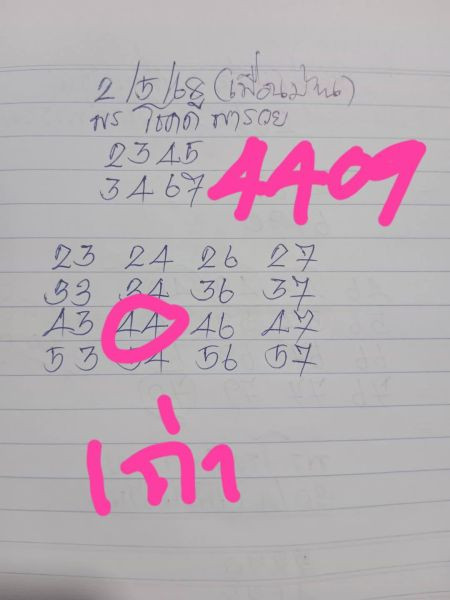 2/5/68 (เพื่อนบ้าน)
พร โชคดี พารวย
2345
3467
4409
23 24 26 27
33 34 36 37
43 44 46 47
53 54 56 57
เก่า